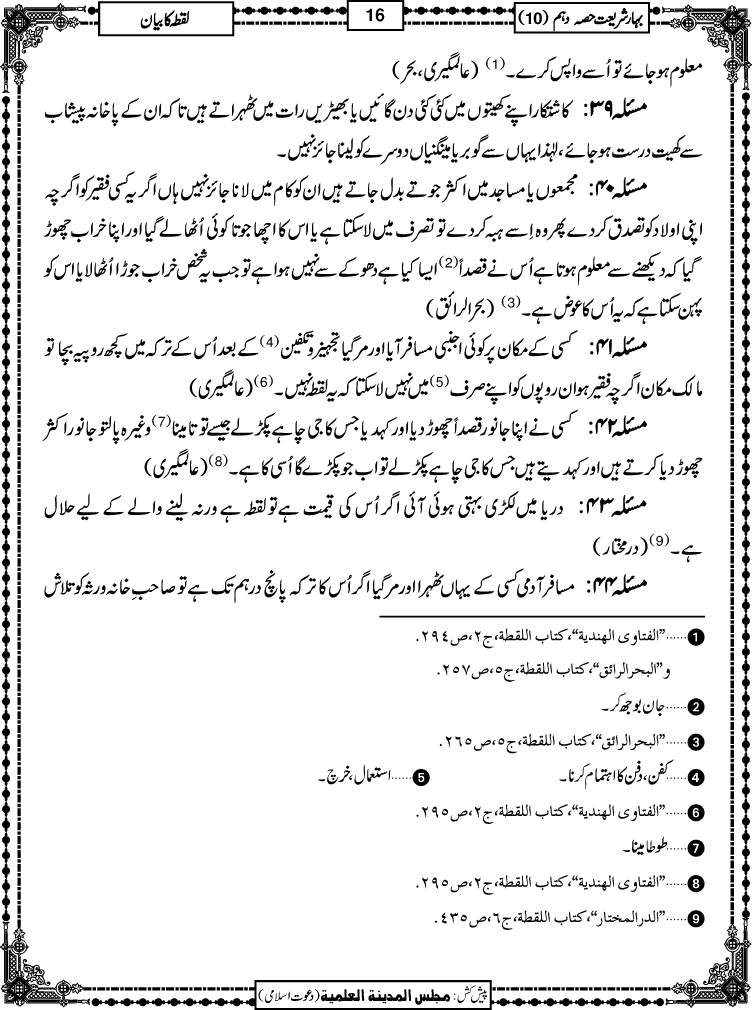 بہار شریعت حصہ دہم (10)
16
لقطہ کا بیان
معلوم ہوجائے تو اُسے واپس کرے۔ (1) (عالمگیری، بحر)
مسئلہ ۳۹: کاشتکار اپنے کھیتوں میں کئی کئی دن گائیں یا بھیڑیں رات میں ٹھہراتے ہیں تاکہ ان کے پاخانہ پیشاب
سے کھیت درست ہوجائے، لہٰذا یہاں سے گوبر یا مینگنیاں دوسرے کو لینا جائز نہیں۔
مسئلہ ۴۰: مجمعوں یا مساجد میں اکثر جوتے بدل جاتے ہیں ان کو کام میں لانا جائز نہیں ہاں اگر یہ کسی فقیر کو اگرچہ
اپنی اولاد کو تصدق کردے پھر وہ اِسے ہبہ کردے تو تصرف میں لا سکتا ہے یا اس کا اچھا جوتا کوئی اُٹھا لے گیا اور اپنا خراب چھوڑ
گیا کہ دیکھنے سے معلوم ہوتا ہے اُس نے قصداً (2) ایسا کیا ہے دھوکے سے نہیں ہوا ہے تو جب یہ شخص خراب جوڑا اُٹھا لایا اس کو
پہن سکتا ہے کہ یہ اُس کا عوض ہے۔ (3) (بحرالرائق)
مسئلہ ۴۱: کسی کے مکان پر کوئی اجنبی مسافر آیا اور مر گیا تجہیز و تکفین (4) کے بعد اُس کے ترکہ میں کچھ روپیہ بچا تو
مالک مکان اگرچہ فقیر ہو ان روپوں کو اپنے صرف (5) میں نہیں لا سکتا کہ یہ لقطہ نہیں۔ (6) (عالمگیری)
مسئلہ ۴۲: کسی نے اپنا جانور قصداً چھوڑ دیا اور کہدیا جس کا جی چاہے پکڑ لے جیسے توتا مینا (7) وغیرہ پالتو جانور اکثر
چھوڑ دیا کرتے ہیں اور کہدیتے ہیں جس کا جی چاہے پکڑ لے تو اب جو پکڑے گا اُسی کا ہے۔ (8) (عالمگیری)
مسئلہ ۴۳: دریا میں لکڑی بہتی ہوئی آئی اگر اُس کی قیمت ہے تو لقطہ ہے ورنہ لینے والے کے لیے حلال
ہے۔ (9) (درمختار)
مسئلہ ۴۴: مسافر آدمی کسی کے یہاں ٹھہرا اور مر گیا اگر اُس کا ترکہ پانچ درہم تک ہے تو صاحبِ خانہ ورثہ کو تلاش
1 ......"الفتاوی الهندية"، كتاب اللقطة، ج۲، ص۲۹٤.
و"البحر الرائق"، كتاب اللقطة، ج٥، ص٢٥٧.
2 ......جان بوجھ کر۔
3 ......"البحر الرائق"، كتاب اللقطة، ج٥، ص٢٦٥.
4 ......کفن، دفن کا اہتمام کرنا۔ 5 ......استعمال، خرچ۔
6 ......"الفتاوی الهندية"، كتاب اللقطة، ج۲، ص۲۹٥.
7 ......طوطا مینا۔
8 ......"الفتاوی الهندية"، كتاب اللقطة، ج۲، ص۲۹٥.
9 ......"الدر المختار"، كتاب اللقطة، ج٦، ص٤٣٥.
پیش کش: مجلس المدينة العلمية (دعوت اسلامی)